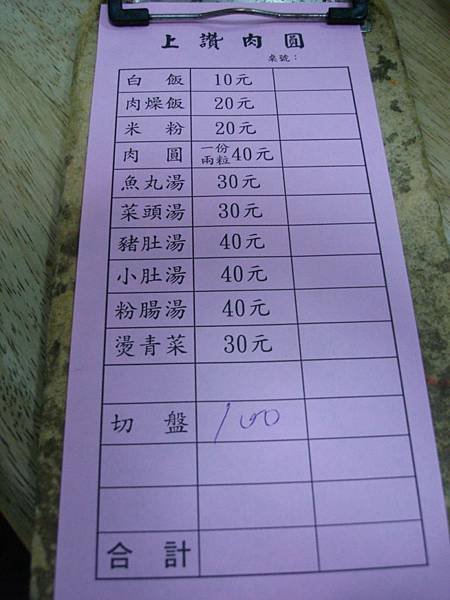 上讚肉圓
桌號：
白飯 10元
肉燥飯 20元
米粉 20元
肉圓 一份兩粒 40元
魚丸湯 30元
菜頭湯 30元
豬肚湯 40元
小肚湯 40元
粉腸湯 40元
燙青菜 30元
切盤 100
合計